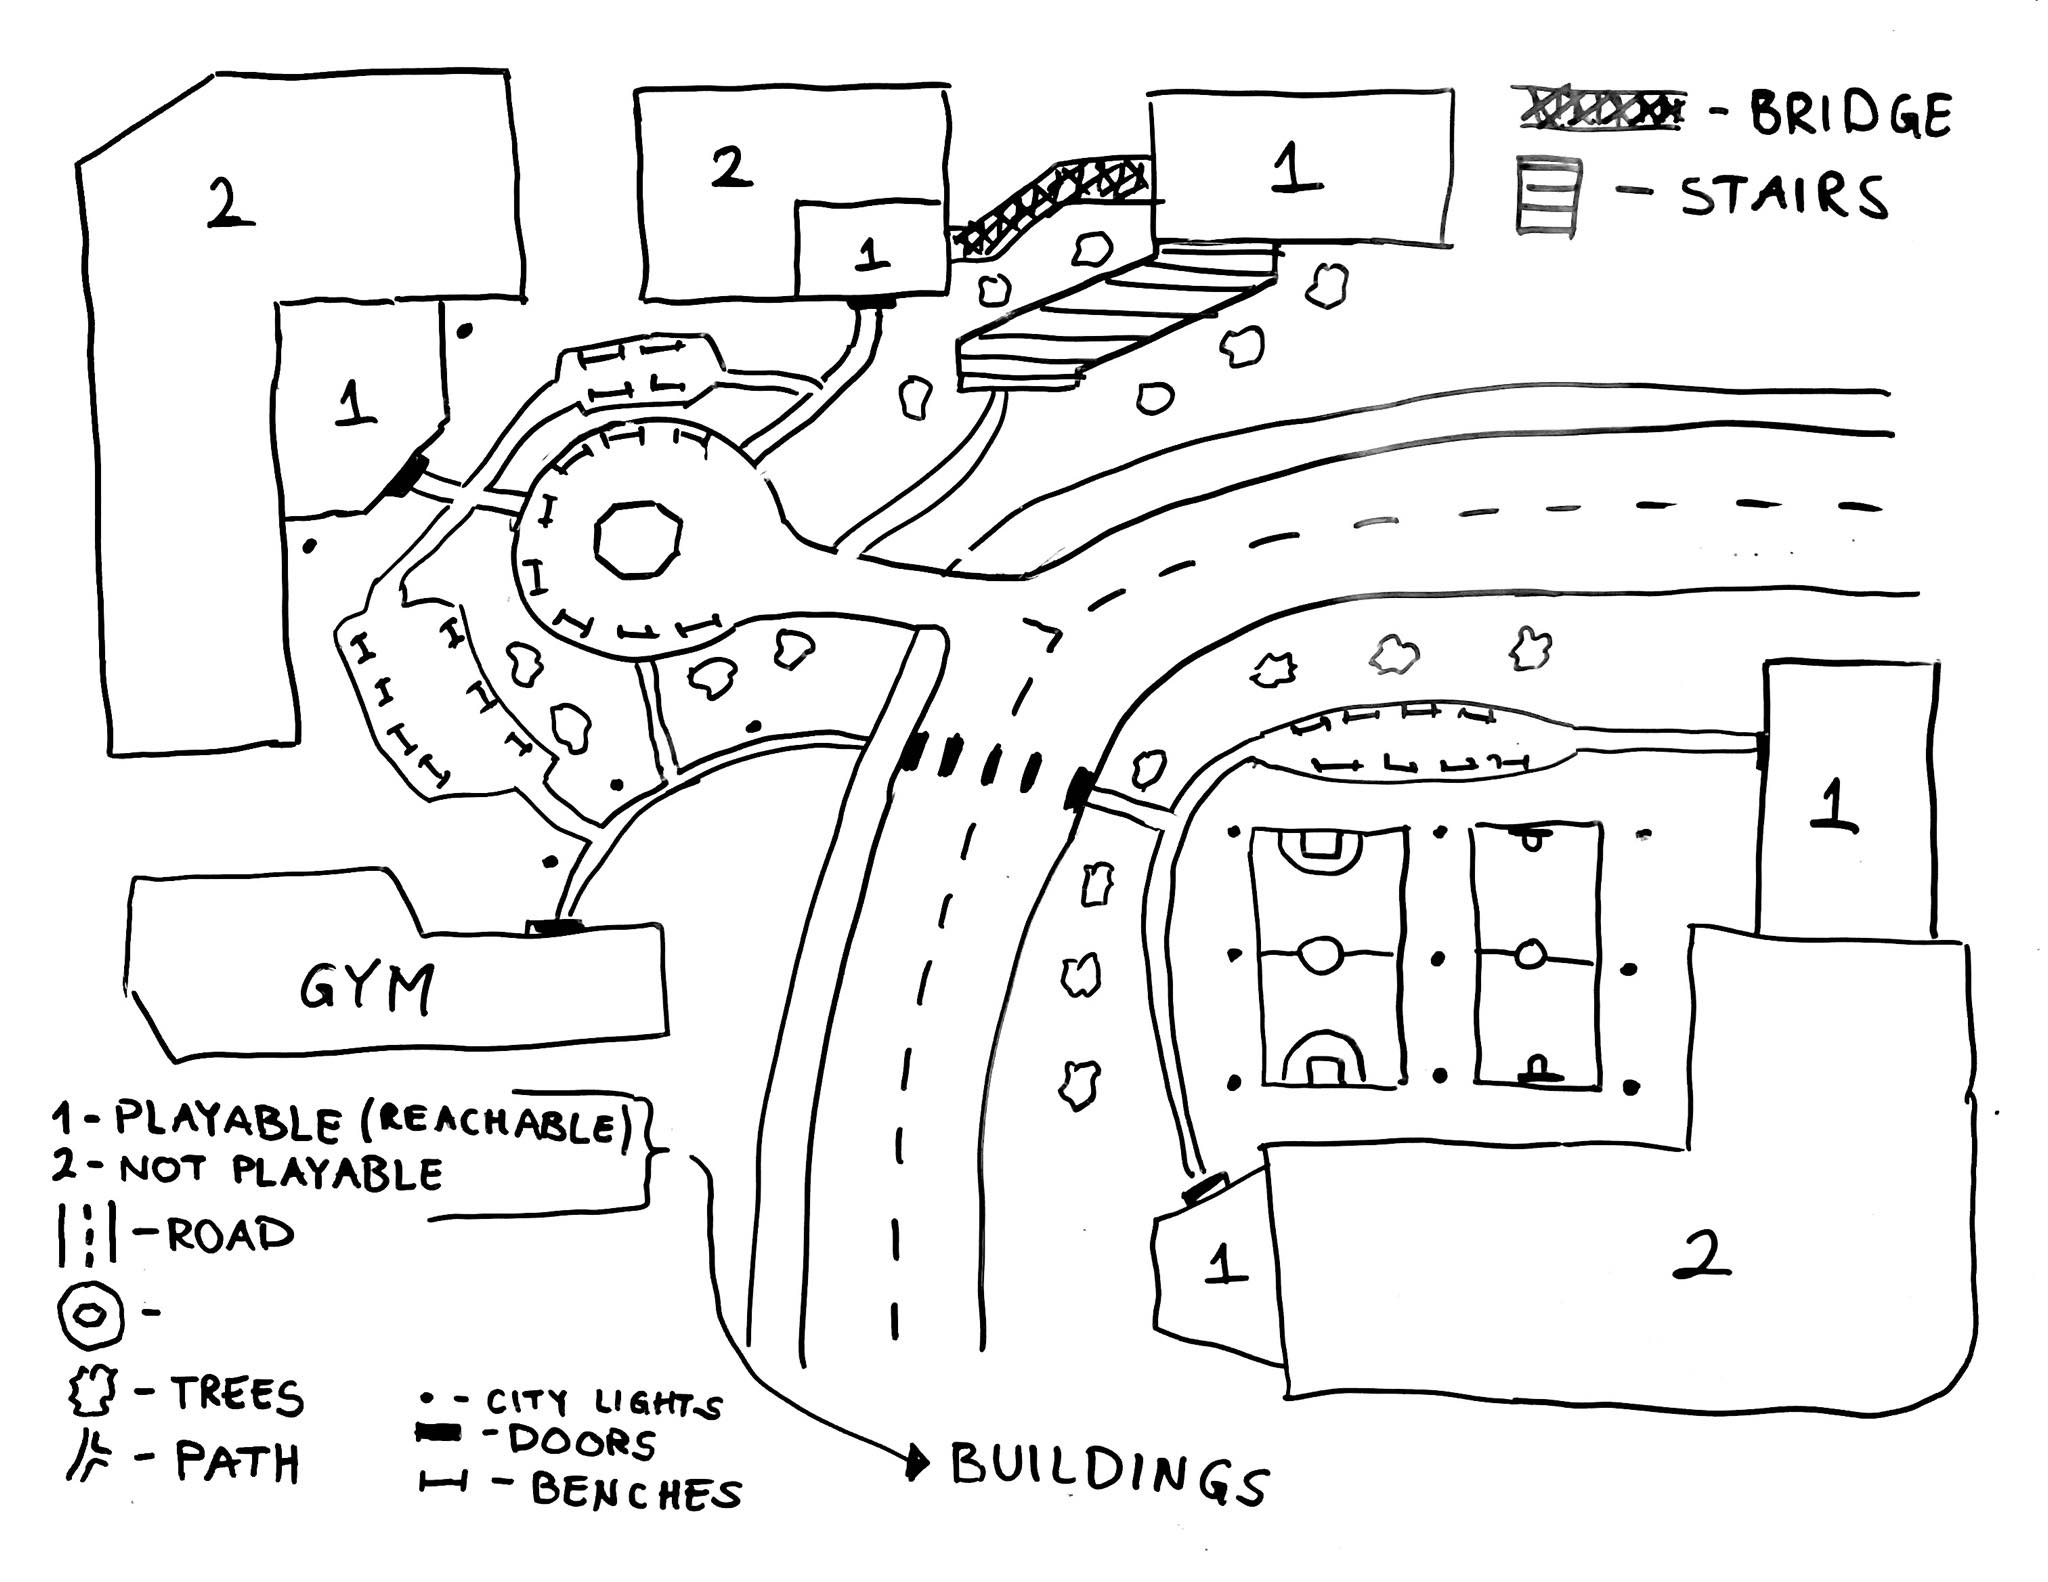 2
2
1
1
1
- BRIDGE
- STAIRS
1
GYM
1
1
2
1- PLAYABLE (REACHABLE)
2- NOT PLAYABLE
- ROAD
-
- TREES
- PATH
- CITY LIGHTS
- DOORS
- BENCHES
BUILDINGS